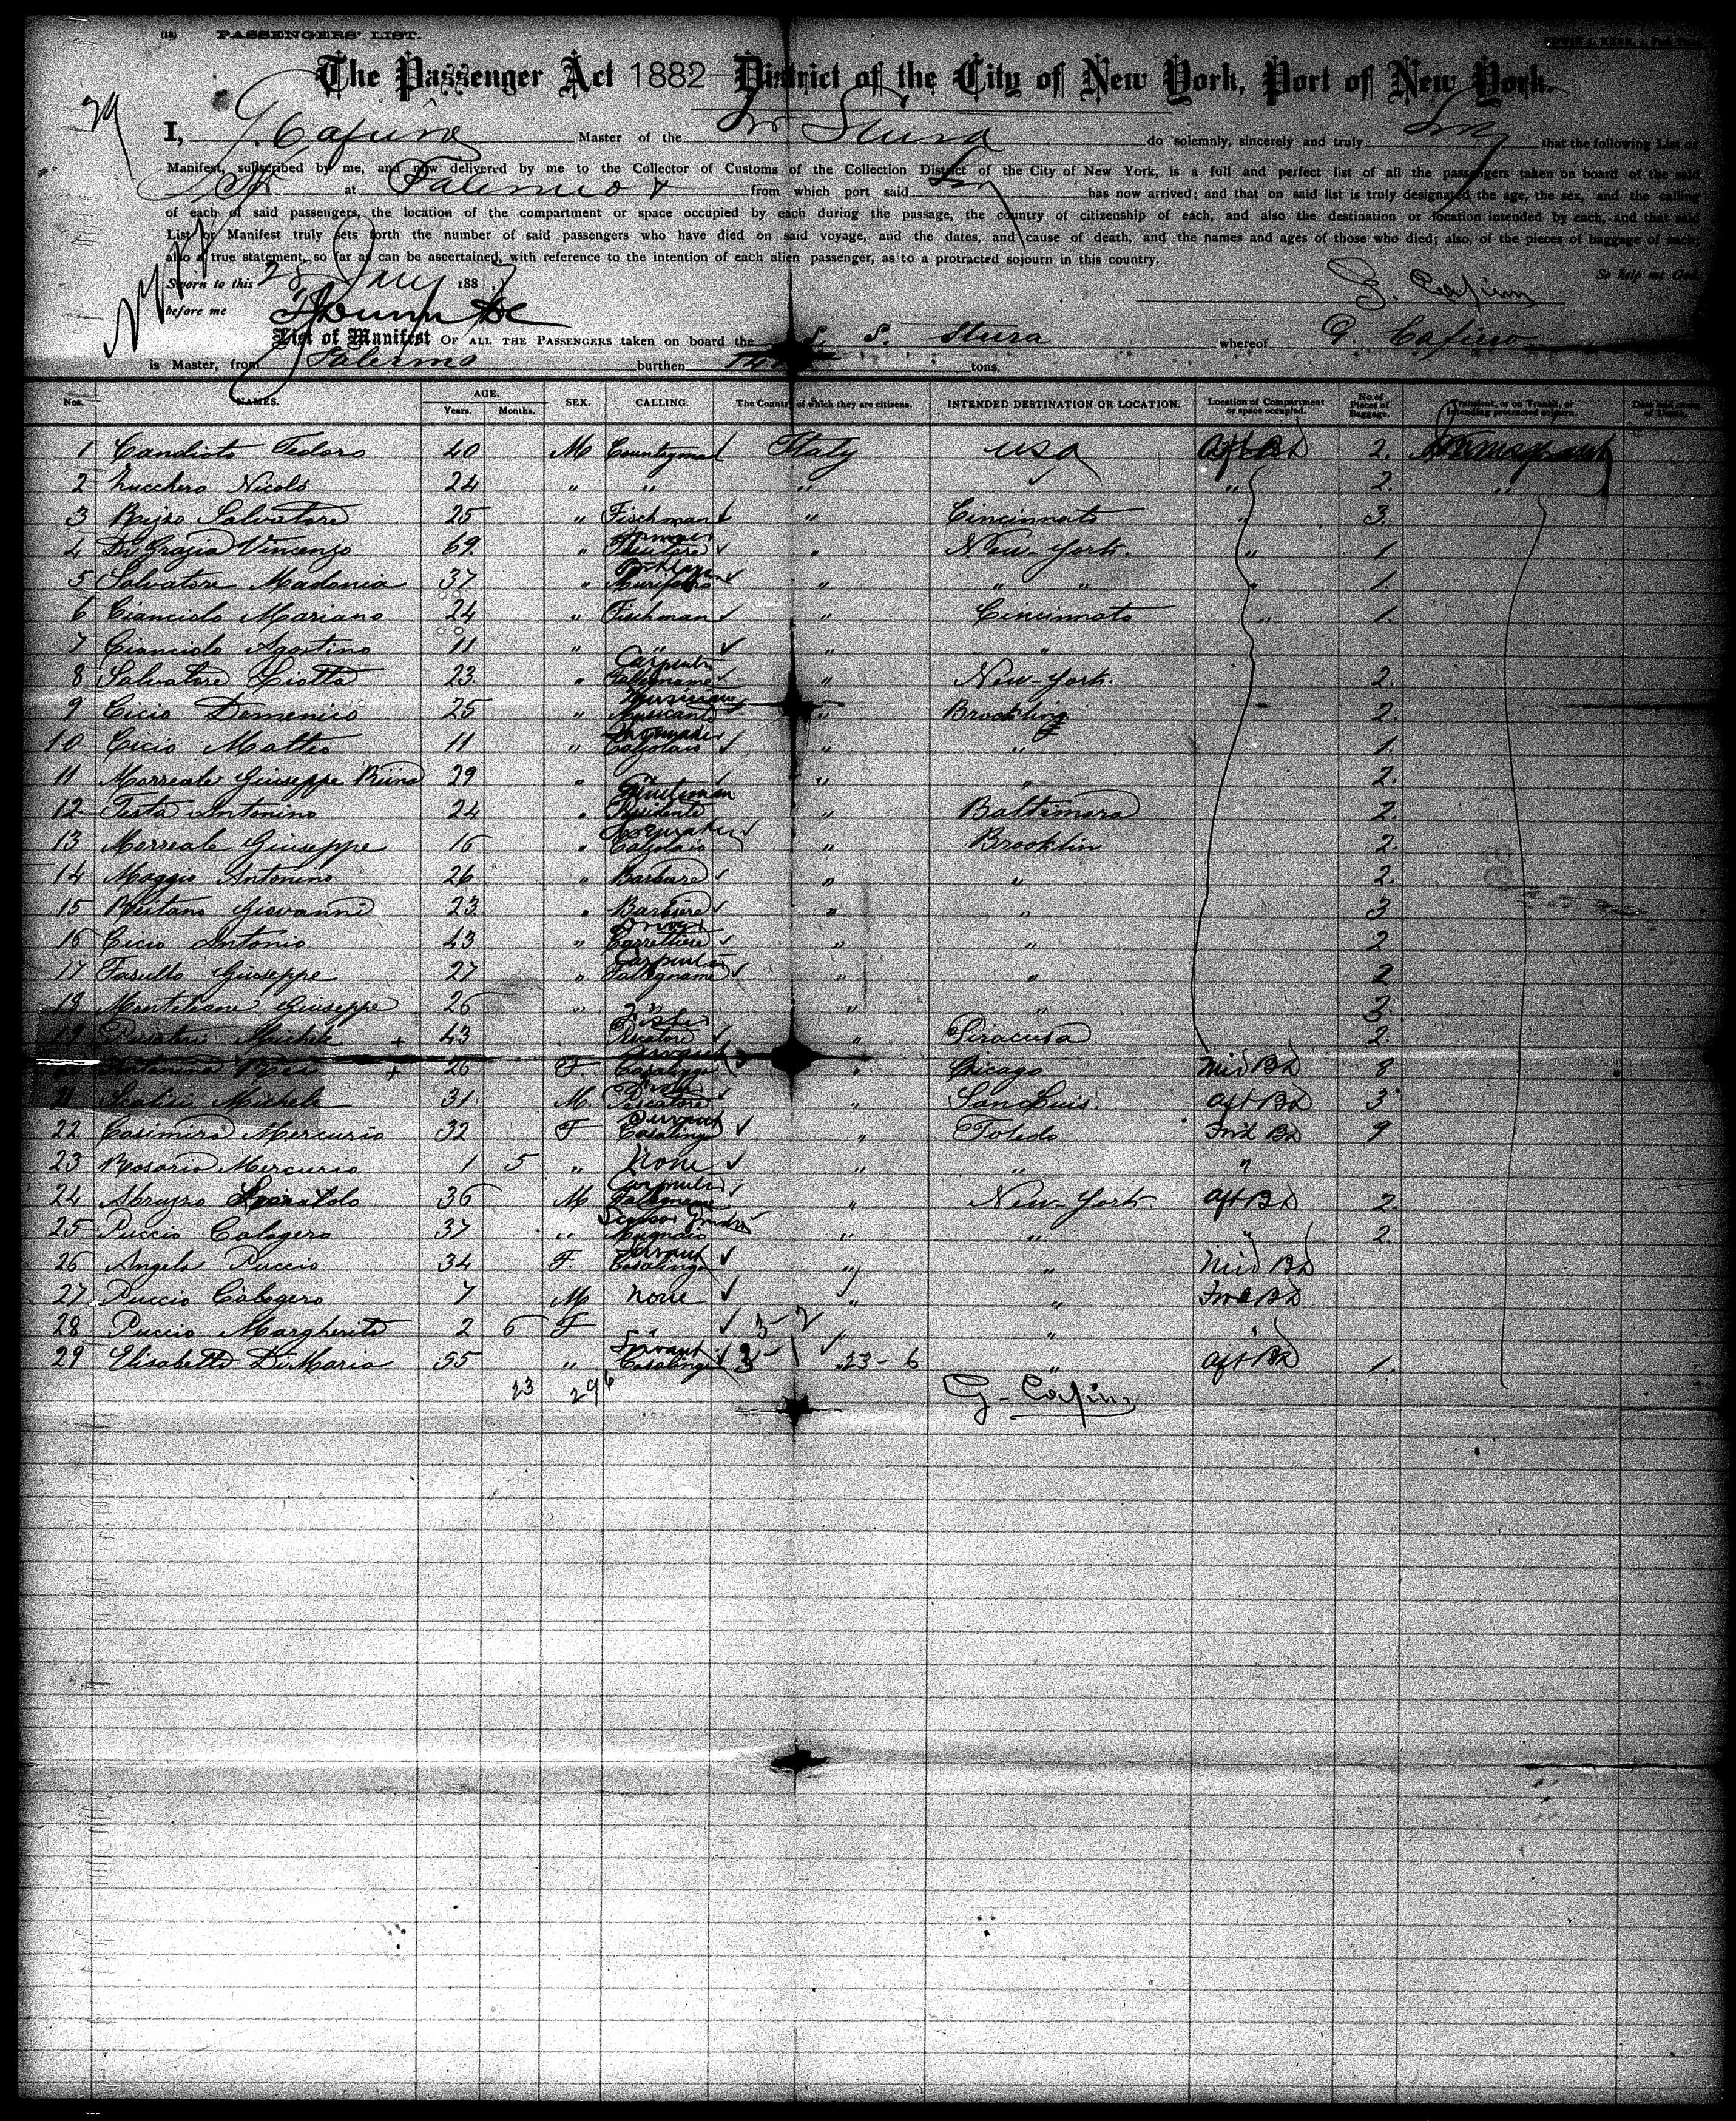 (18) PASSENGERS' LIST.
The Passenger Act 1882 District of the City of New York, Port of New York.
29
I, G. Cafiero Master of the Str Stura do solemnly, sincerely and truly that the following List or
Manifest, subscribed by me, and now delivered by me to the Collector of Customs of the Collection District of the City of New York, is a full and perfect list of all the passengers taken on board of the said
at Palermo from which port said has now arrived; and that on said list is truly designated the age, the sex, and the calling
of each of said passengers, the location of the compartment or space occupied by each during the passage, the country of citizenship of each, and also the destination or location intended by each, and that said
List or Manifest truly sets forth the number of said passengers who have died on said voyage, and the dates, and cause of death, and the names and ages of those who died; also, of the pieces of baggage of each;
also a true statement, so far as can be ascertained, with reference to the intention of each alien passenger, as to a protracted sojourn in this country.
So help me God.
Sworn to this 188
before me
G. Cafiero
List of Manifest OF ALL THE PASSENGERS taken on board the S. S. Stura whereof G. Cafiero
is Master, from Palermo burthen tons.
Nos. NAMES. AGE. Years. Months. SEX. CALLING. The Country of which they are citizens. INTENDED DESTINATION OR LOCATION. Location of Compartment or space occupied. No. of Pieces of Baggage. Transient, or on Transit, or Intending protracted sojourn. Date and cause of Death.
1 Candioto Fedoro 40 M Countryman Italy USA Aft Bd 2.
2 Zucchero Nicolo 24 " " " " 2. "
3 Rizzo Salvatore 25 " Fischman " Cincinnato " 3.
4 Di Grazia Vincenzo 69 " " New-York. " 1
5 Salvatore Madonia 37 " " " " " 1.
6 Cianciolo Mariano 24 " Fischman " Cincinnato " 1.
7 Cianciolo Agostino 11 " " " "
8 Salvatore Liotta 23. " Carpenter Falegname " New-York. 2.
9 Cicio Domenico 25 " Musician Musicante " Brooklin 2.
10 Cicio Matteo 11 " Shoemaker Calzolaio " " 1.
11 Morreale Giuseppe Riina 29 " " " " 2.
12 Testa Antonino 24 " Gentleman Possidente " Baltimora 2.
13 Morreale Giuseppe 16 " Shoemaker Calzolaio " Brooklin 2.
14 Maggio Antonino 26 " Barbiere " " 2.
15 Reitano Giovanni 23 " Barbiere " " 3
16 Cicio Antonio 43 " Driver Carrettiere " " 2
17 Fasullo Giuseppe 27 " Carpenter Falegname " " 2
18 Monteleone Giuseppe 26 " " " " 3.
19 Michele + 43 Fisher Pescatore " Siracusa 2.
Antonina + 26 F Servant Casalinga " Chicago Mid Bd 8
21 Scalisi Michele 31. M Pescatore " San Luis. Aft Bd 3
22 Casimira Mercurio 32 F Servant Casalinga " Toledo Fwd Bd 9
23 Rosario Mercurio 1 5 " None " " "
24 Abruzzo 36 M Carpenter Falegname " New-York. Aft Bd 2.
25 Puccio Calogero 37 " Scissor Grinder " " " 2.
26 Angela Puccio 34 F. Servant Casalinga " " Mid Bd
27 Puccio Calogero 7 M None " " Fwd Bd
28 Puccio Margherita 2 6 F " " " "
29 Elisabetta Di Maria 55 " Servant Casalinga " 23 - 6 " Aft Bd 1.
23 29 6
G. Cafiero